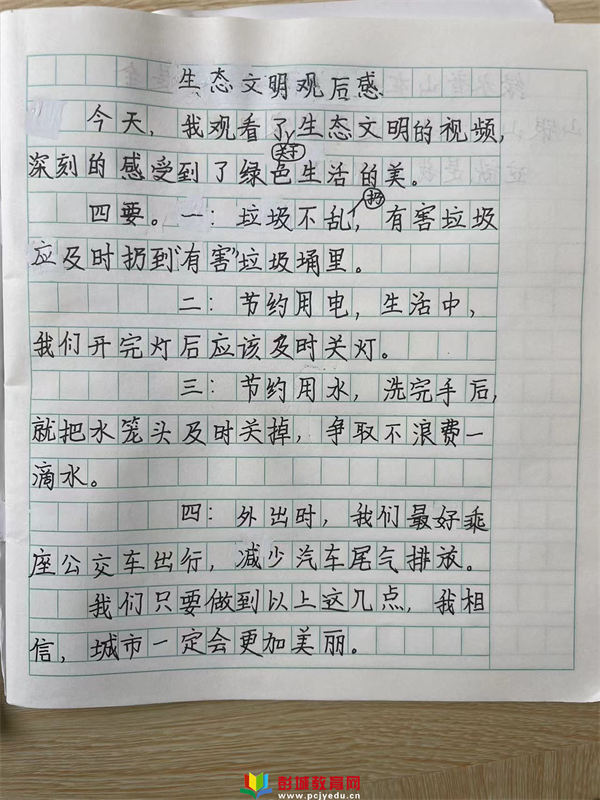 生态文明观后感
今天，我观看了关于生态文明的视频，
深刻的感受到了绿色生活的美。
四要。一：垃圾不乱扔，有害垃圾
应及时扔到“有害”垃圾埇里。
二：节约用电，生活中，
我们开完灯后应该及时关灯。
三：节约用水，洗完手后，
就把水笼头及时关掉，争取不浪费一
滴水。
四：外出时，我们最好乘
座公交车出行，减少汽车尾气排放。
我们只要做到以上这几点，我相
信，城市一定会更加美丽。
彭城教育网
www.pcjyedu.cn